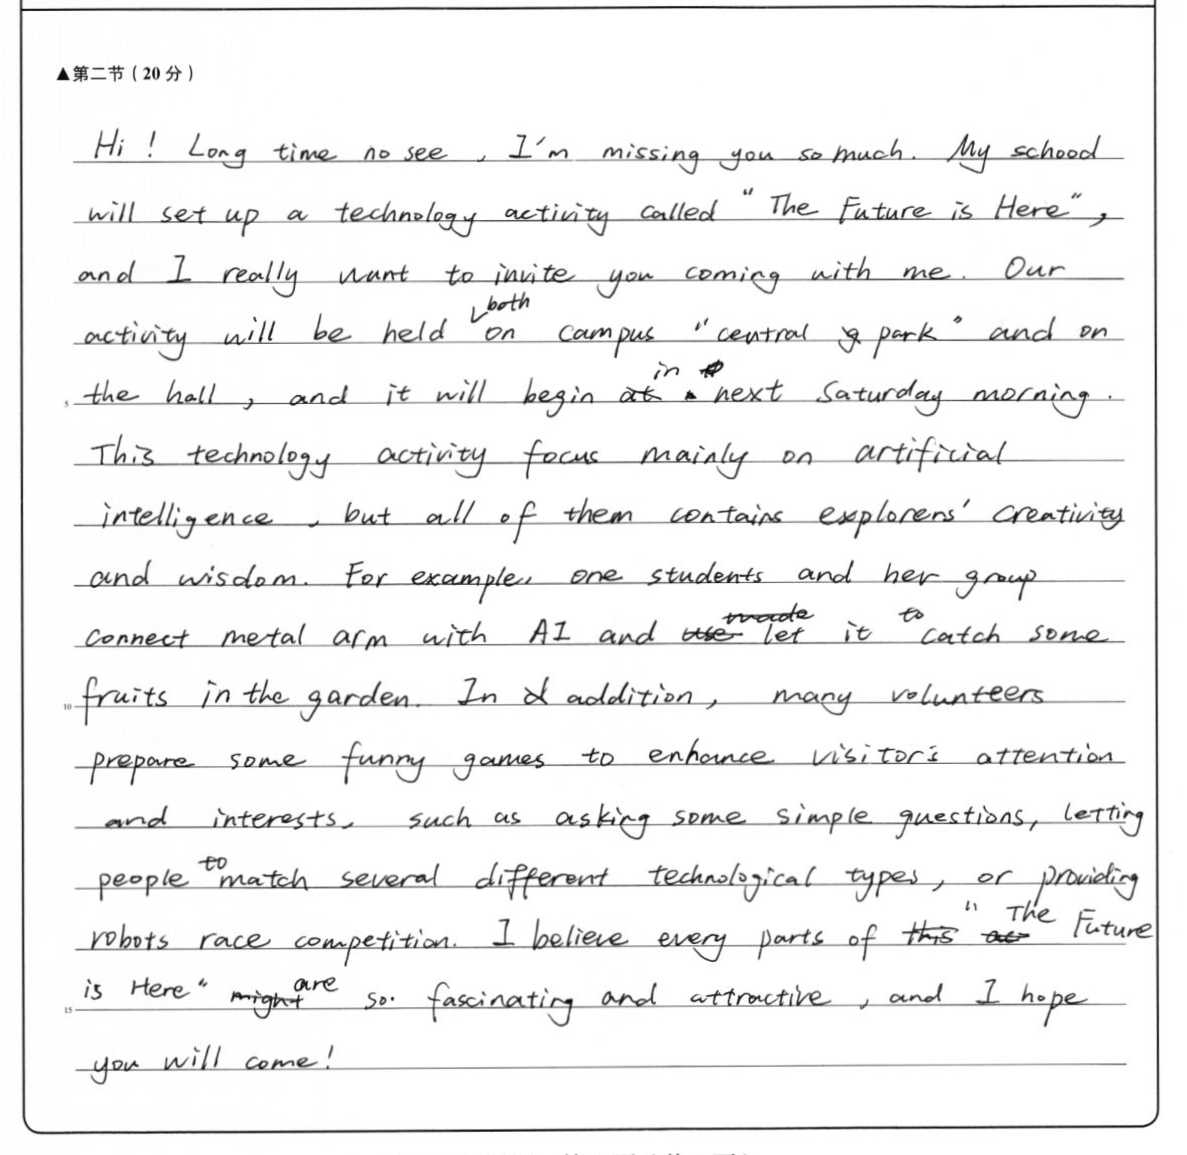 ▲第二节(20分)
Hi! Long time no see, I'm missing you so much. My school
will set up a technology activity called "The Future is Here",
and I really want to invite you coming with me. Our
activity will be held both on campus "central park" and on
5 the hall, and it will begin in next Saturday morning.
This technology activity focus mainly on artificial
intelligence, but all of them contains explorers' creativity
and wisdom. For example, one students and her group
connect metal arm with AI and let it to catch some
10 fruits in the garden. In addition, many volunteers
prepare some funny games to enhance visitor's attention
and interests, such as asking some simple questions, letting
people to match several different technological types, or providing
robots race competition. I believe every parts of "The Future
15 is Here" are so fascinating and attractive, and I hope
you will come!